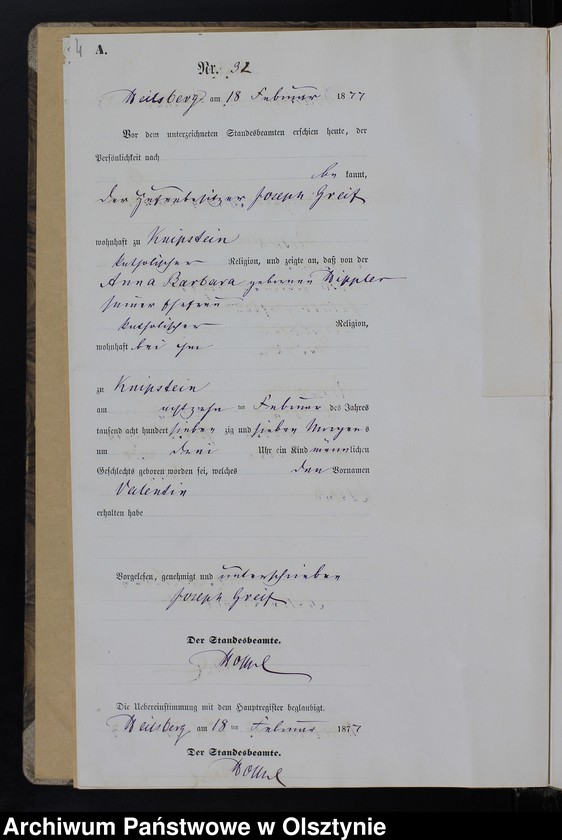 4
A.
Nr. 32
Heilsberg am 18 Februar 1877
Vor dem unterzeichneten Standesbeamten erschien heute, der
Persönlichkeit nach
be kannt,
der Hufenbesitzer Joseph Greif
wohnhaft zu Knipstein
katholischer Religion, und zeigte an, daß von der
Anna Barbara geborenen Wippler
seiner Ehefrau
katholischer Religion,
wohnhaft bei ihm
zu Knipstein
am achtzehn Februar des Jahres
tausend acht hundert sieben zig und sieben Morgens
um drei Uhr ein Kind männlichen
Geschlechts geboren worden sei, welches den Vornamen
Valentin
erhalten habe
Vorgelesen, genehmigt und unterschrieben
Joseph Greif
Der Standesbeamte.
Die Uebereinstimmung mit dem Hauptregister beglaubigt.
Heilsberg am 18 Februar 1877
Der Standesbeamte.
Archiwum Państwowe w Olsztynie